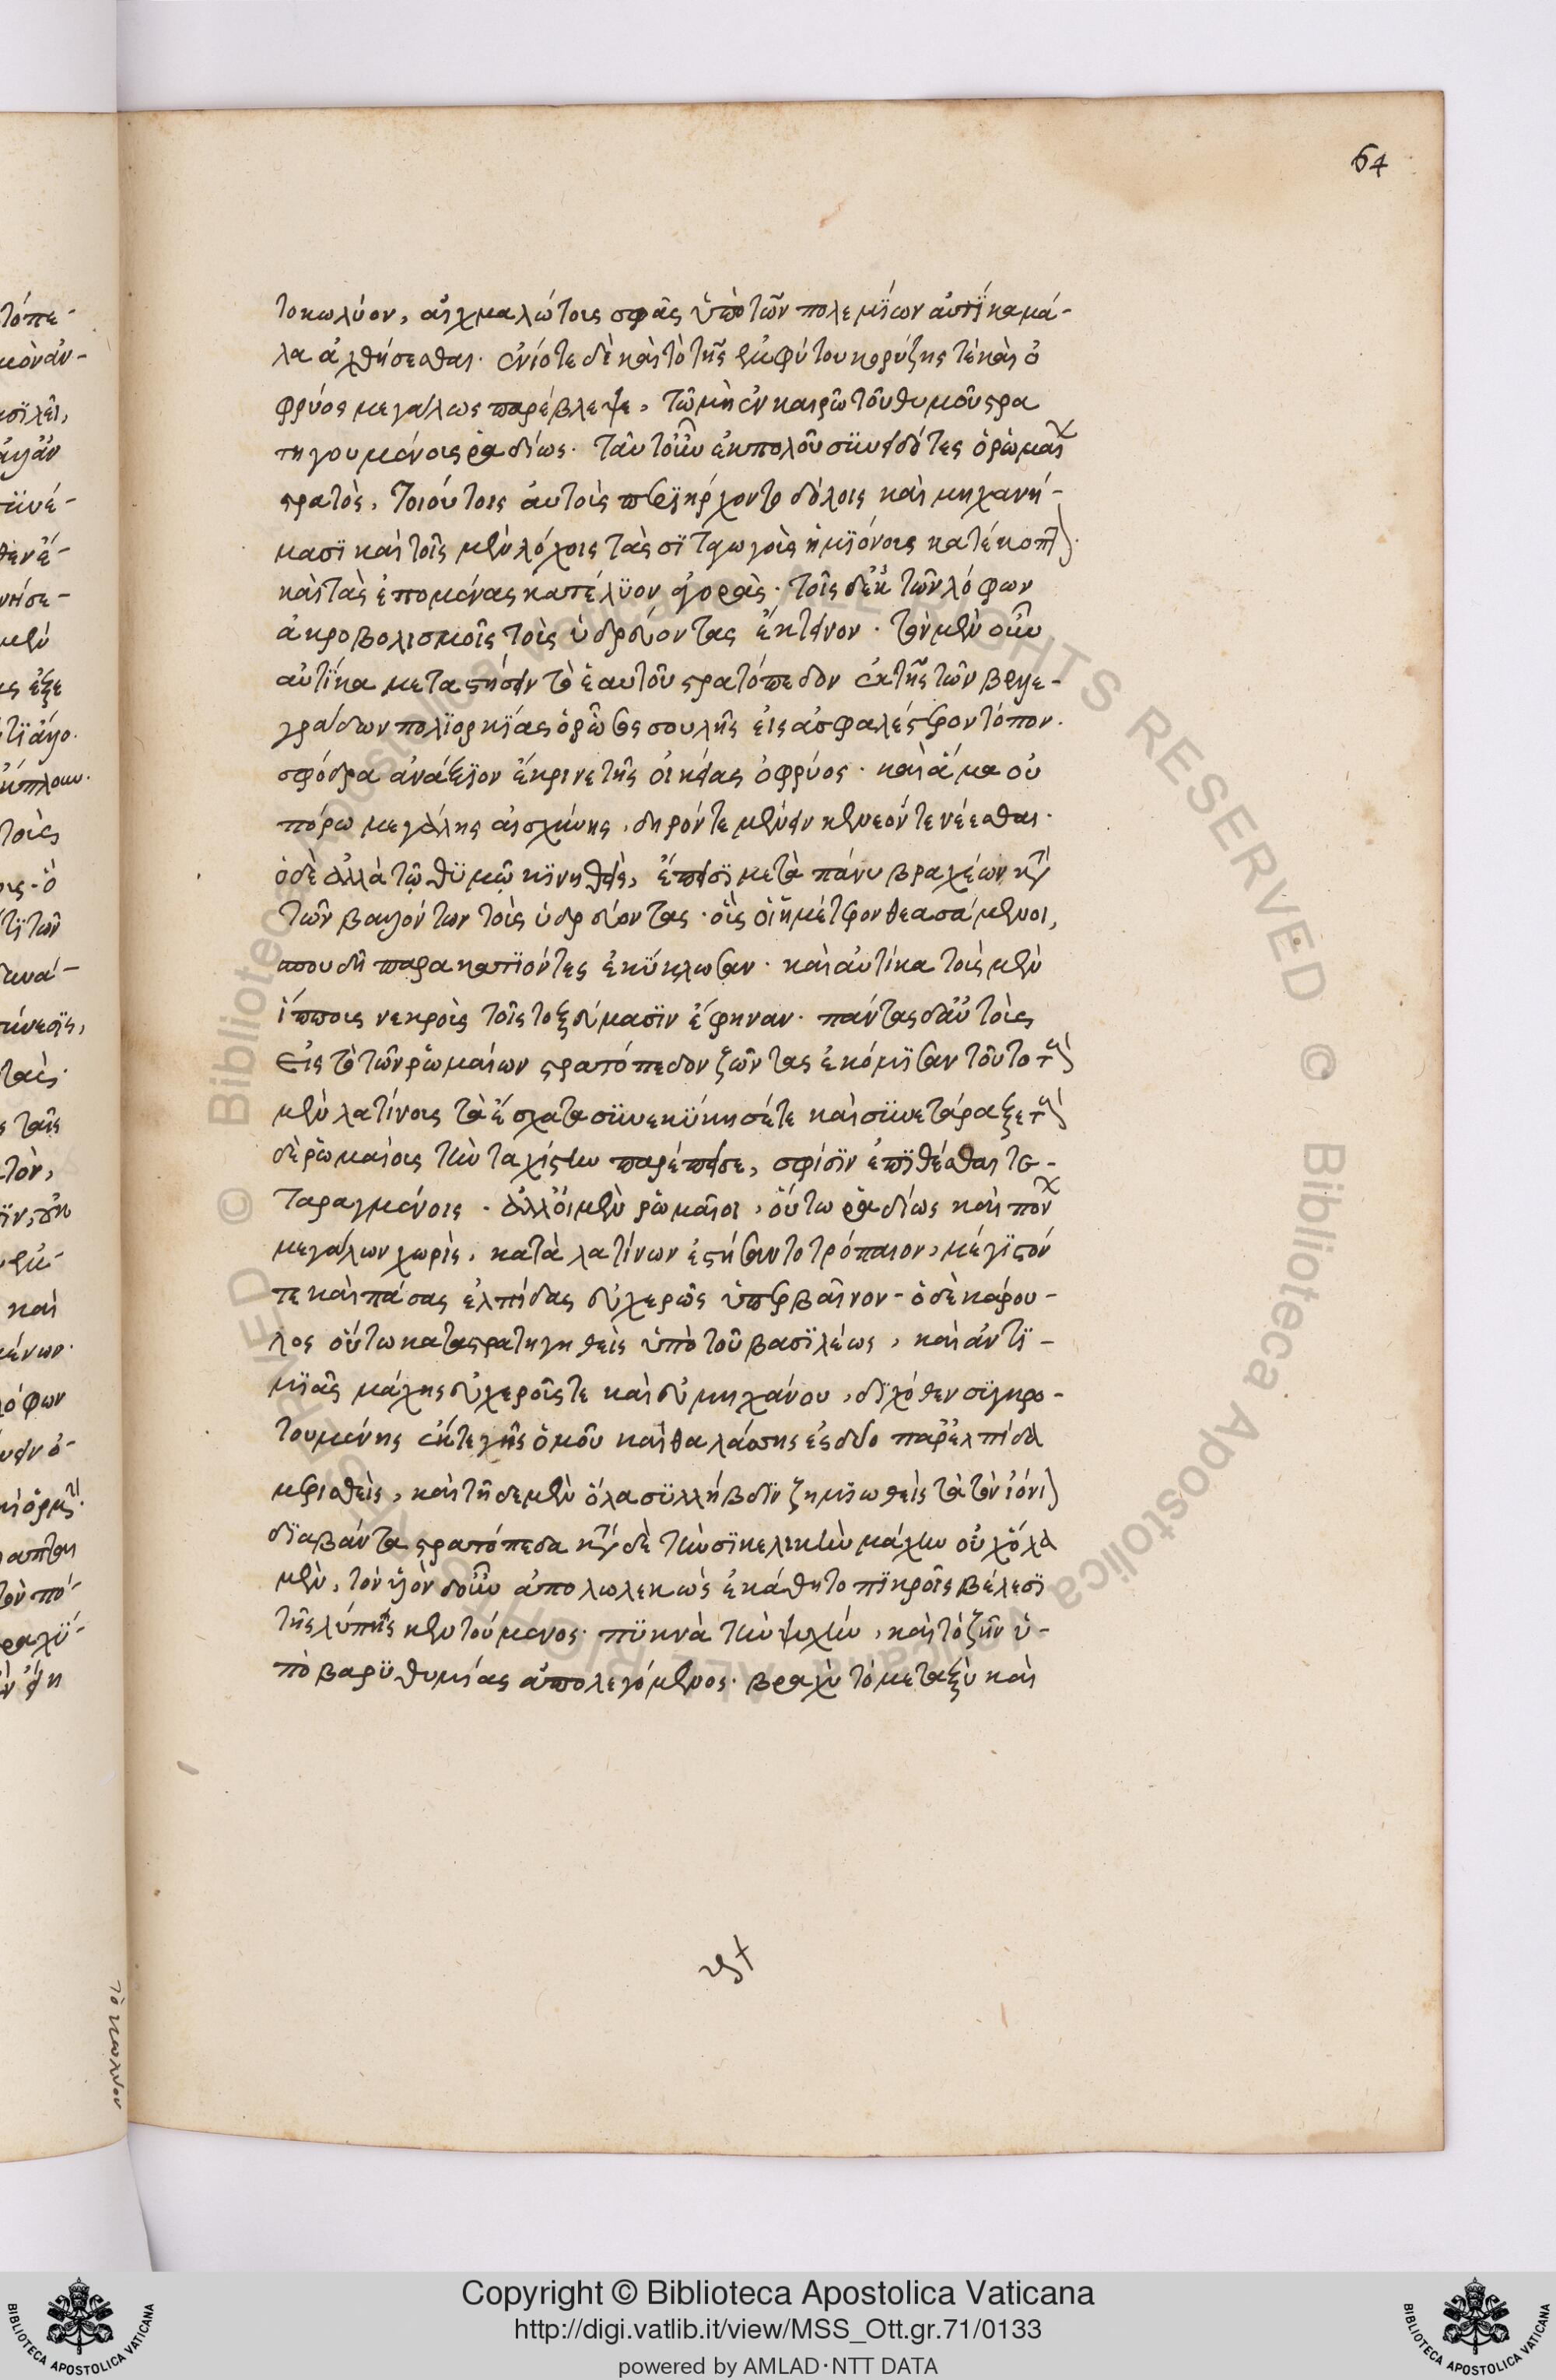 64
το κωλύον, αἰχμαλώτους σφᾶς ὑπὸ τῶν πολεμΐων αὐτΐκα μά-
λα ἀχθήσεσθαι. ἐνίοτε δὲ καὶ τὸ τῆς ἐμφύτου κορύζης τὲ καὶ ὀ
φρύος μεγάλως παρέβλεψε, τῶ μὴ ἐν καιρῶ τοῦ θυμοῦ στρα
τηγουμένοις ῥαδίως. ταῦτ' οὖν ἐκ πολοῦ συνειδότες ὁ ῥωμαϊ
στρατὸς, τοιούτοις αὐτοὺς περιήρχοντο δόλοις καὶ μηχανή-
μασϊ καὶ τοῖς μὲν λόχοις τὰς σϊταγωγοὺς ἡμϊόνους κατέκοπτ
καὶ τὰς ἑπομένας κατέλϋον ἀγορὰς. τοῖς δ' ἐκ τῶν λόφων
ἀκροβολισμοῖς τοὺς ὑδρεύοντας ἔκτεινον. τὸν μὲν οὖν
αὐτΐκα μεταστήσειν τὸ ἑαυτοῦ στρατόπεδον ἐκ τῆς τῶν βελε-
γράδων πολϊορκΐας ὁρῶντες σουλῆς εἰς ἀσφαλέστερον τόπον.
σφόδρα ἀνάξϊον ἔκρινε τῆς οἰκείας ὀφρύος. καὶ ἅμα οὐ
πόρω μεγάλης αἰσχύνης, δηρόν τε μένειν κενεόν τε νέεσθαι.
ὁ δὲ ἀλλὰ τῷ θϋμῷ κϊνηθεὶς, ἔπεισϊ μετὰ πάνυ βραχέων κατὰ
τῶν βαλόντων τοὺς ὑδρεύοντας. οὓς οἱ ἡμέτεροι θεασάμενοι,
σπουδῆ παρακατϊόντες ἐκΰκλωσαν. καὶ αὐτίκα τοὺς μὲν
ἵππους νεκροὺς τοῖς τοξεύμασϊν ἔφηναν. πάντας δ' αὐτοὺς
εἰς τὸ τῶν ῥωμαίων στρατόπεδον ζῶντας ἐκόμϊσαν τοῦτο τοὺς
μὲν λατίνους τὰ ἔσχατα σϋνεκΰκησέ τε καὶ σϋνετάραξε τοὺς
δὲ ῥωμαίους τὴν ταχίστην παρέπεισε, σφίσϊν ἐπϊθέσθαι τε-
ταραγμένοις. ἀλλ' οἱ μὲν ῥωμαῖοι, οὕτω ῥαδίως καὶ πόνων
μεγάλων χωρὶς, κατὰ λατίνων ἐστήσαντο τρόπαιον, μέγϊστόν
τε καὶ πάσας ἐλπίδας εὐχερῶς ὑπερβαῖνον. ὁ δὲ κάρου-
λος οὕτω καταστρατηγηθεὶς ὑπὸ τοῦ βασϊλέως, καὶ ἀντὶ-
μϊᾶς μάχης εὐχεροῦς τε καὶ εὐμηχάνου, δϊχόθεν σϋγκρο-
τουμένης ἔκ τε γῆς ὁμοῦ καὶ θαλάσσης ἐς δύο παρ' ἐλπίδα
μερισθεὶς, καὶ τῆδε μὲν ὅλα σϋλλήβδϊν ζημϊωθεὶς τὰ τὸν ἰόνιον
δϊαβάντα στρατόπεδα κατὰ δὲ τὴν σϊκελικὴν μάχην οὐχ' ὅλα
μὲν, τὸν υἱὸν δ' οὖν ἀπολωλεκὼς ἐκάθητο πϊκροῖς βέλεσϊ
τῆς λύπης κεντούμενος. πϋκνὰ τὴν ψυχὴν, καὶ τὸ ζῆν ὑ-
πὸ βαρϋθυμίας ἀπολεγόμενος. βραχὺ τὸ μεταξὺ καὶ
τὸ κωλύον
Copyright © Biblioteca Apostolica Vaticana
http://digi.vatlib.it/view/MSS_Ott.gr.71/0133
powered by AMLAD·NTT DATA